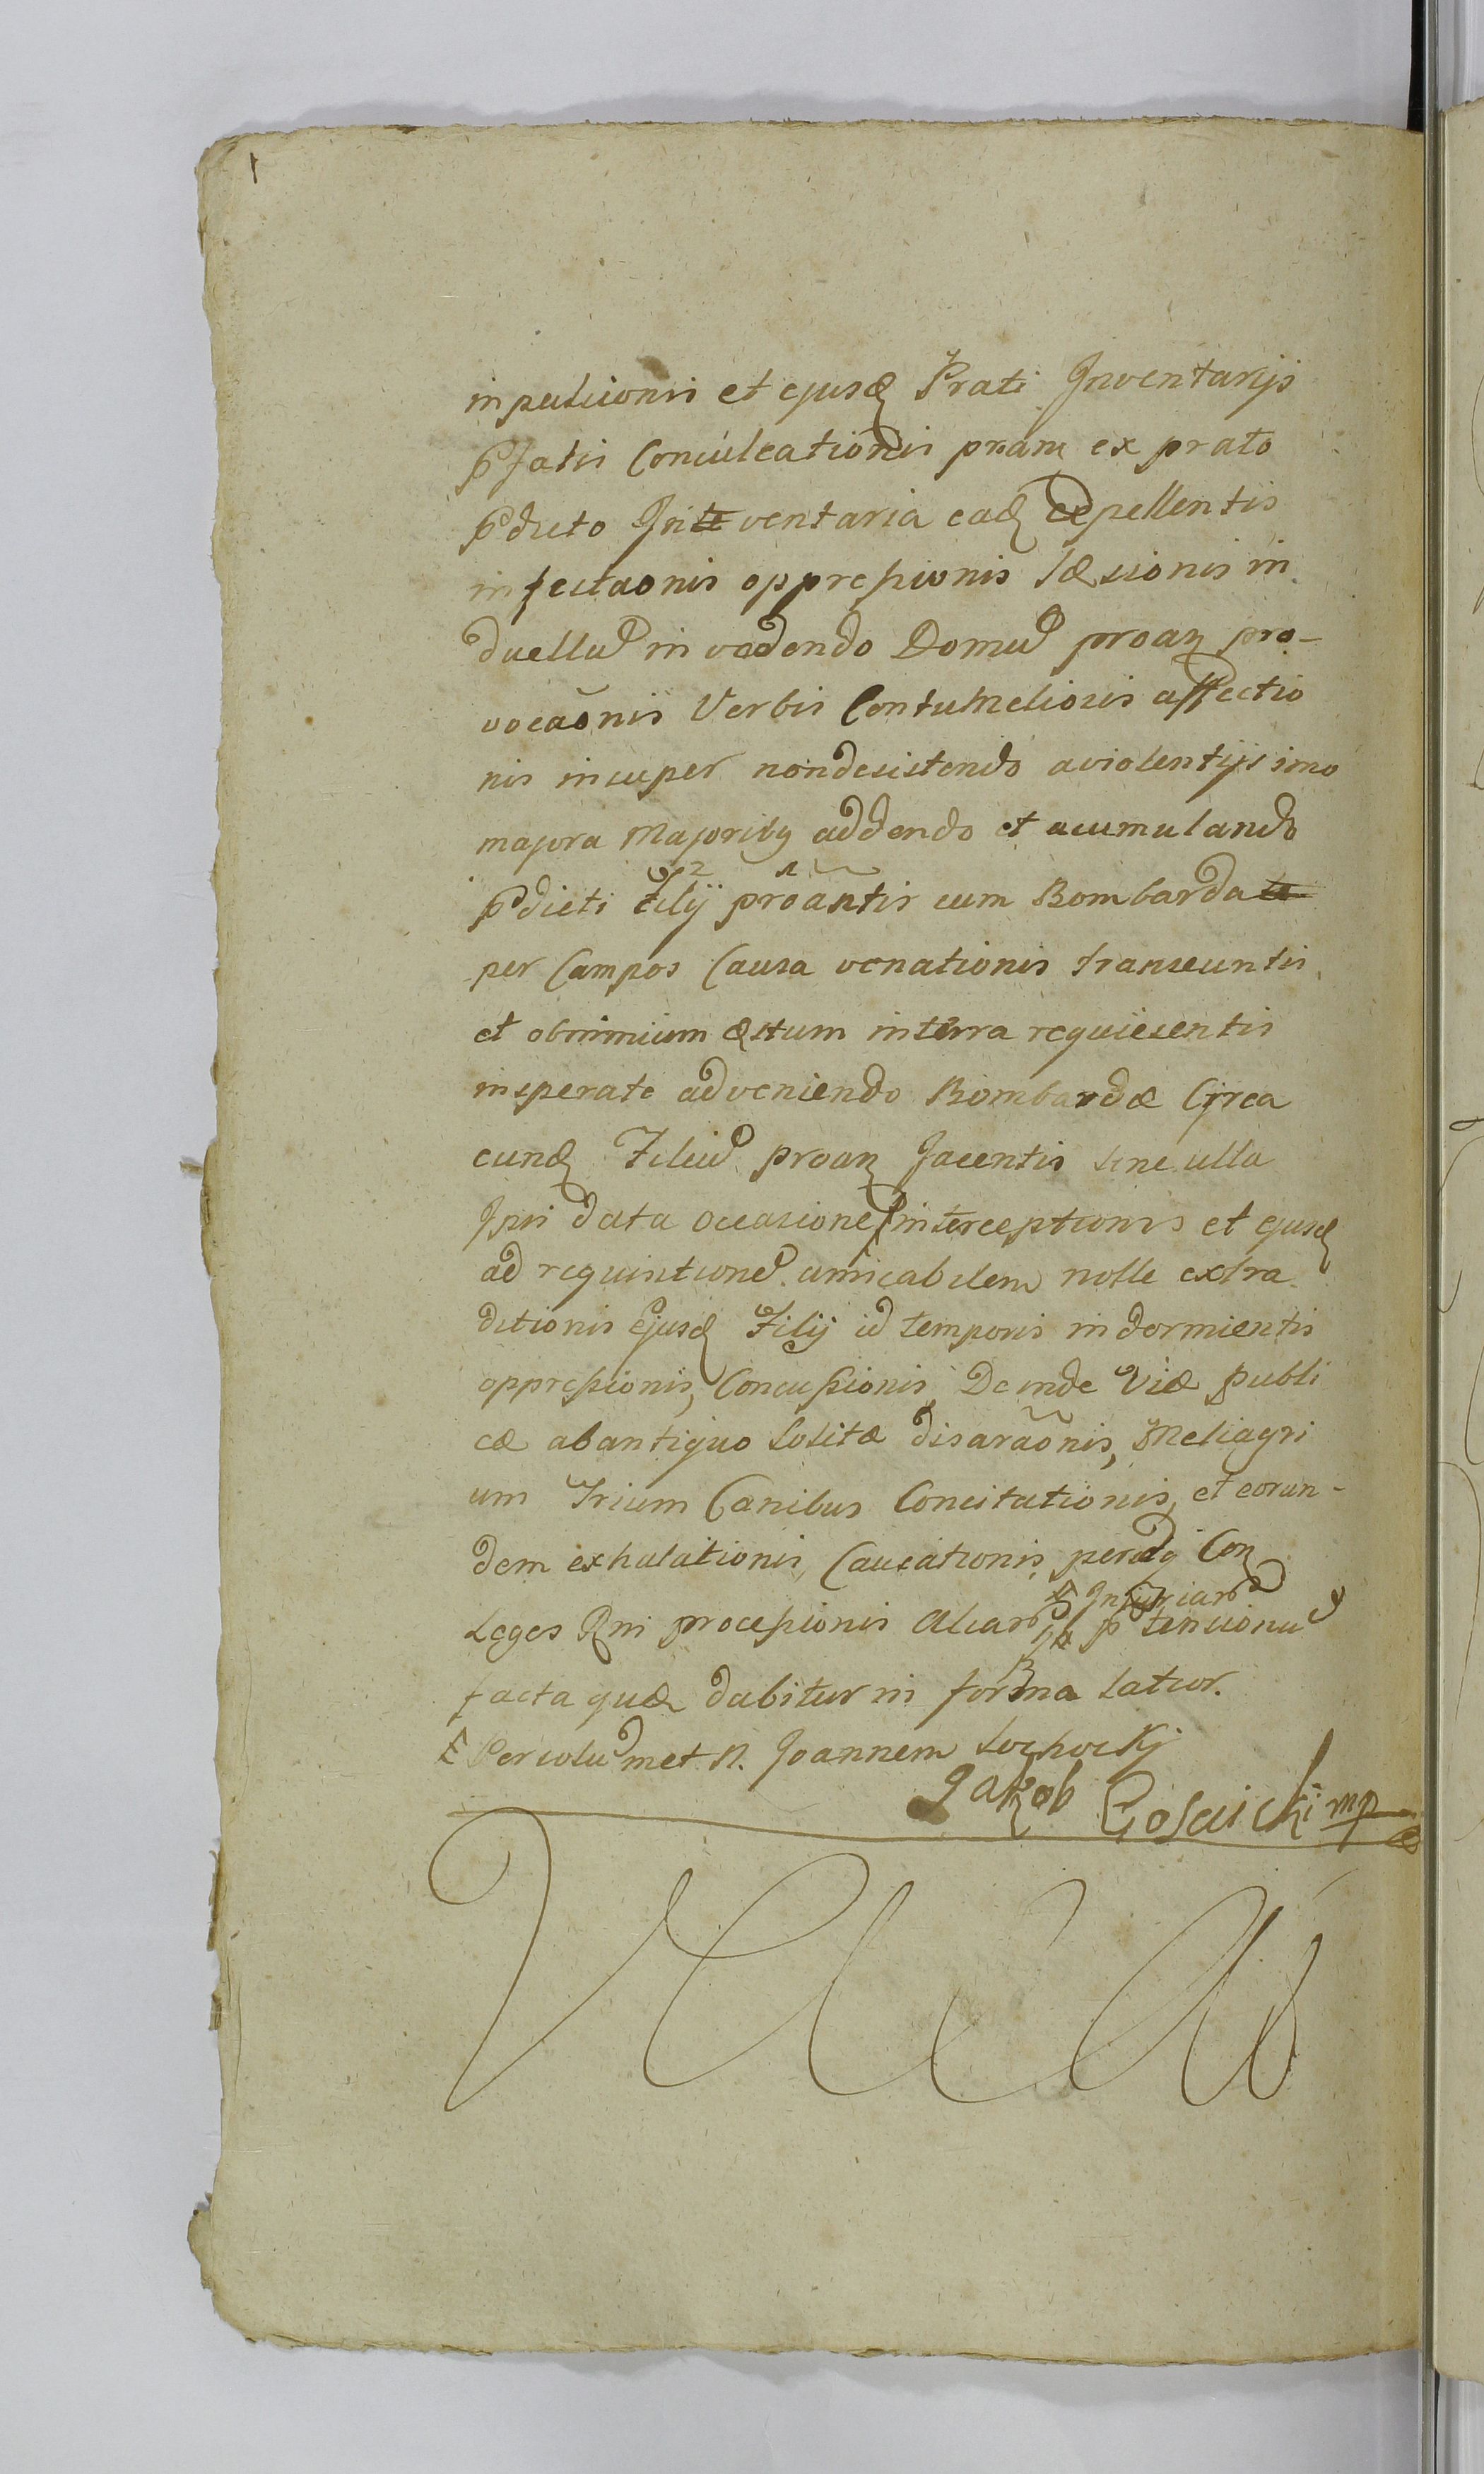 inpulsionis et ejusd Prati Inventarijs
pfatis Conculcationis proan ex prato
pdicto Inventaria ead expellentis
infestaonis oppressionis læsionis in
duellu invadendo Domu proan pro-
vocaõnis Verbis Contumeliosis affectio
nis insuper nondesistendo aviolentijs imo
majora Majoribq addendo et acumulando
pdicti Filij proantis cum Bombarda
per Campos Causa venationis transeuntis
et obnimium æstum interra requiesentis
insperate adveniendo Bombardæ Circa
eund Filiu proan Jacentis sine ulla
Ipsi data occasione interceptionis et ejusd
ad requisitione amicabilem nolle extra
ditionis ejusd Filij id temporis indormientis
oppressionis, Concussionis Deinde Viæ Publi
cæ abantiquo Solitæ disaraõnis, Meliagri
um Trium Canibus Concitationis, et eorun-
dem exhalationis, Causationis, perdq Con
Injuriar
Leges Rni processionis aliar ptensionu
facta quæ dabitur in forma latior.
Persolu met N. Joannem Lochocki
Jakob mp